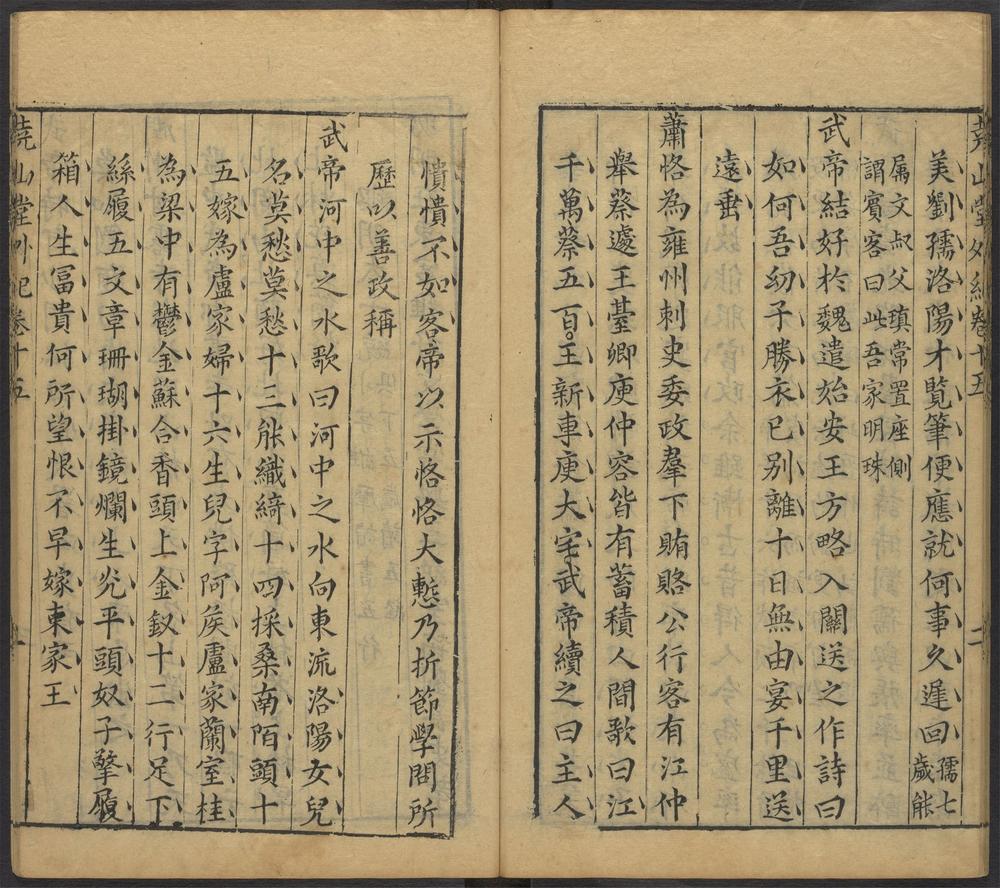 堯山堂外紀卷十五 二
美劉孺洛陽才覽筆便應就何事久遲回孺七
歲能
屬文叔父瑱常置座側
謂賓客曰此吾家明珠
武帝結好於魏遣始安王方略入關送之作詩曰
如何吾幼子勝衣已别離十日無由宴千里送
遠垂
蕭恪為雍州刺史委政羣下賄賂公行客有江仲
舉蔡遽王臺卿庾仲容皆有蓄積人間歌曰江
千萬蔡五百王新車庾大宅武帝續之曰主人
憒憒不如客帝以示恪恪大慙乃折節學問所
歷以善政稱
武帝河中之水歌曰河中之水向東流洛陽女兒
名莫愁莫愁十三能織綺十四採桑南陌頭十
五嫁為盧家婦十六生兒字阿矦盧家蘭室桂
為梁中有鬱金蘇合香頭上金釵十二行足下
絲履五文章珊瑚掛鏡爛生光平頭奴子擎履
箱人生冨貴何所望恨不早嫁東家王
堯山堂外紀卷十五